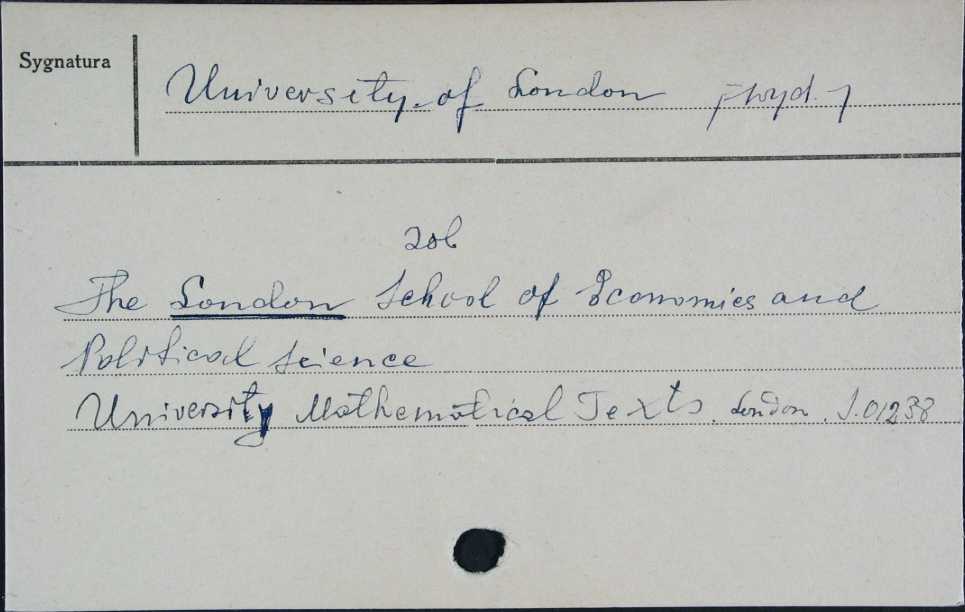 Sygnatura
University of London /-wyd.-/
zob
The London School of Economics and
Political Science
University Mathematical Texts. London. J.01238